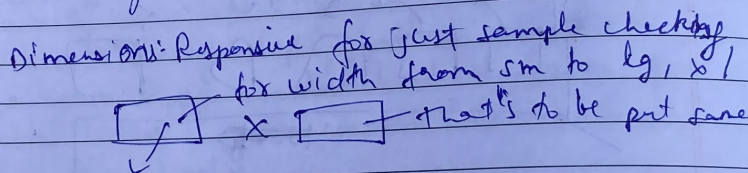 Dimensions: Responsive for just sample checking
for width from sm to lg, xl
× that's to be put same